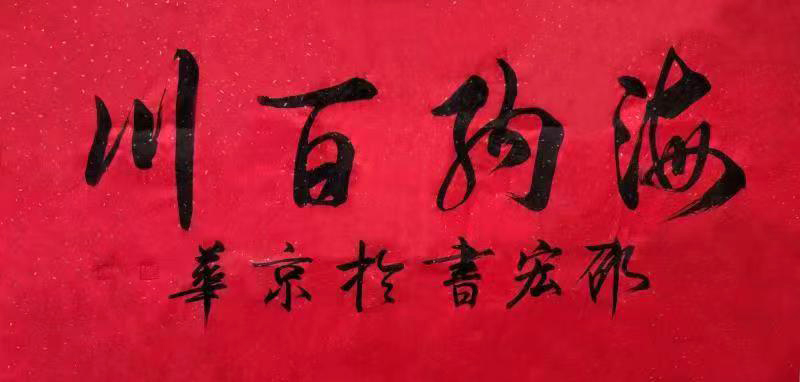 海納百川
邵宏書於京華